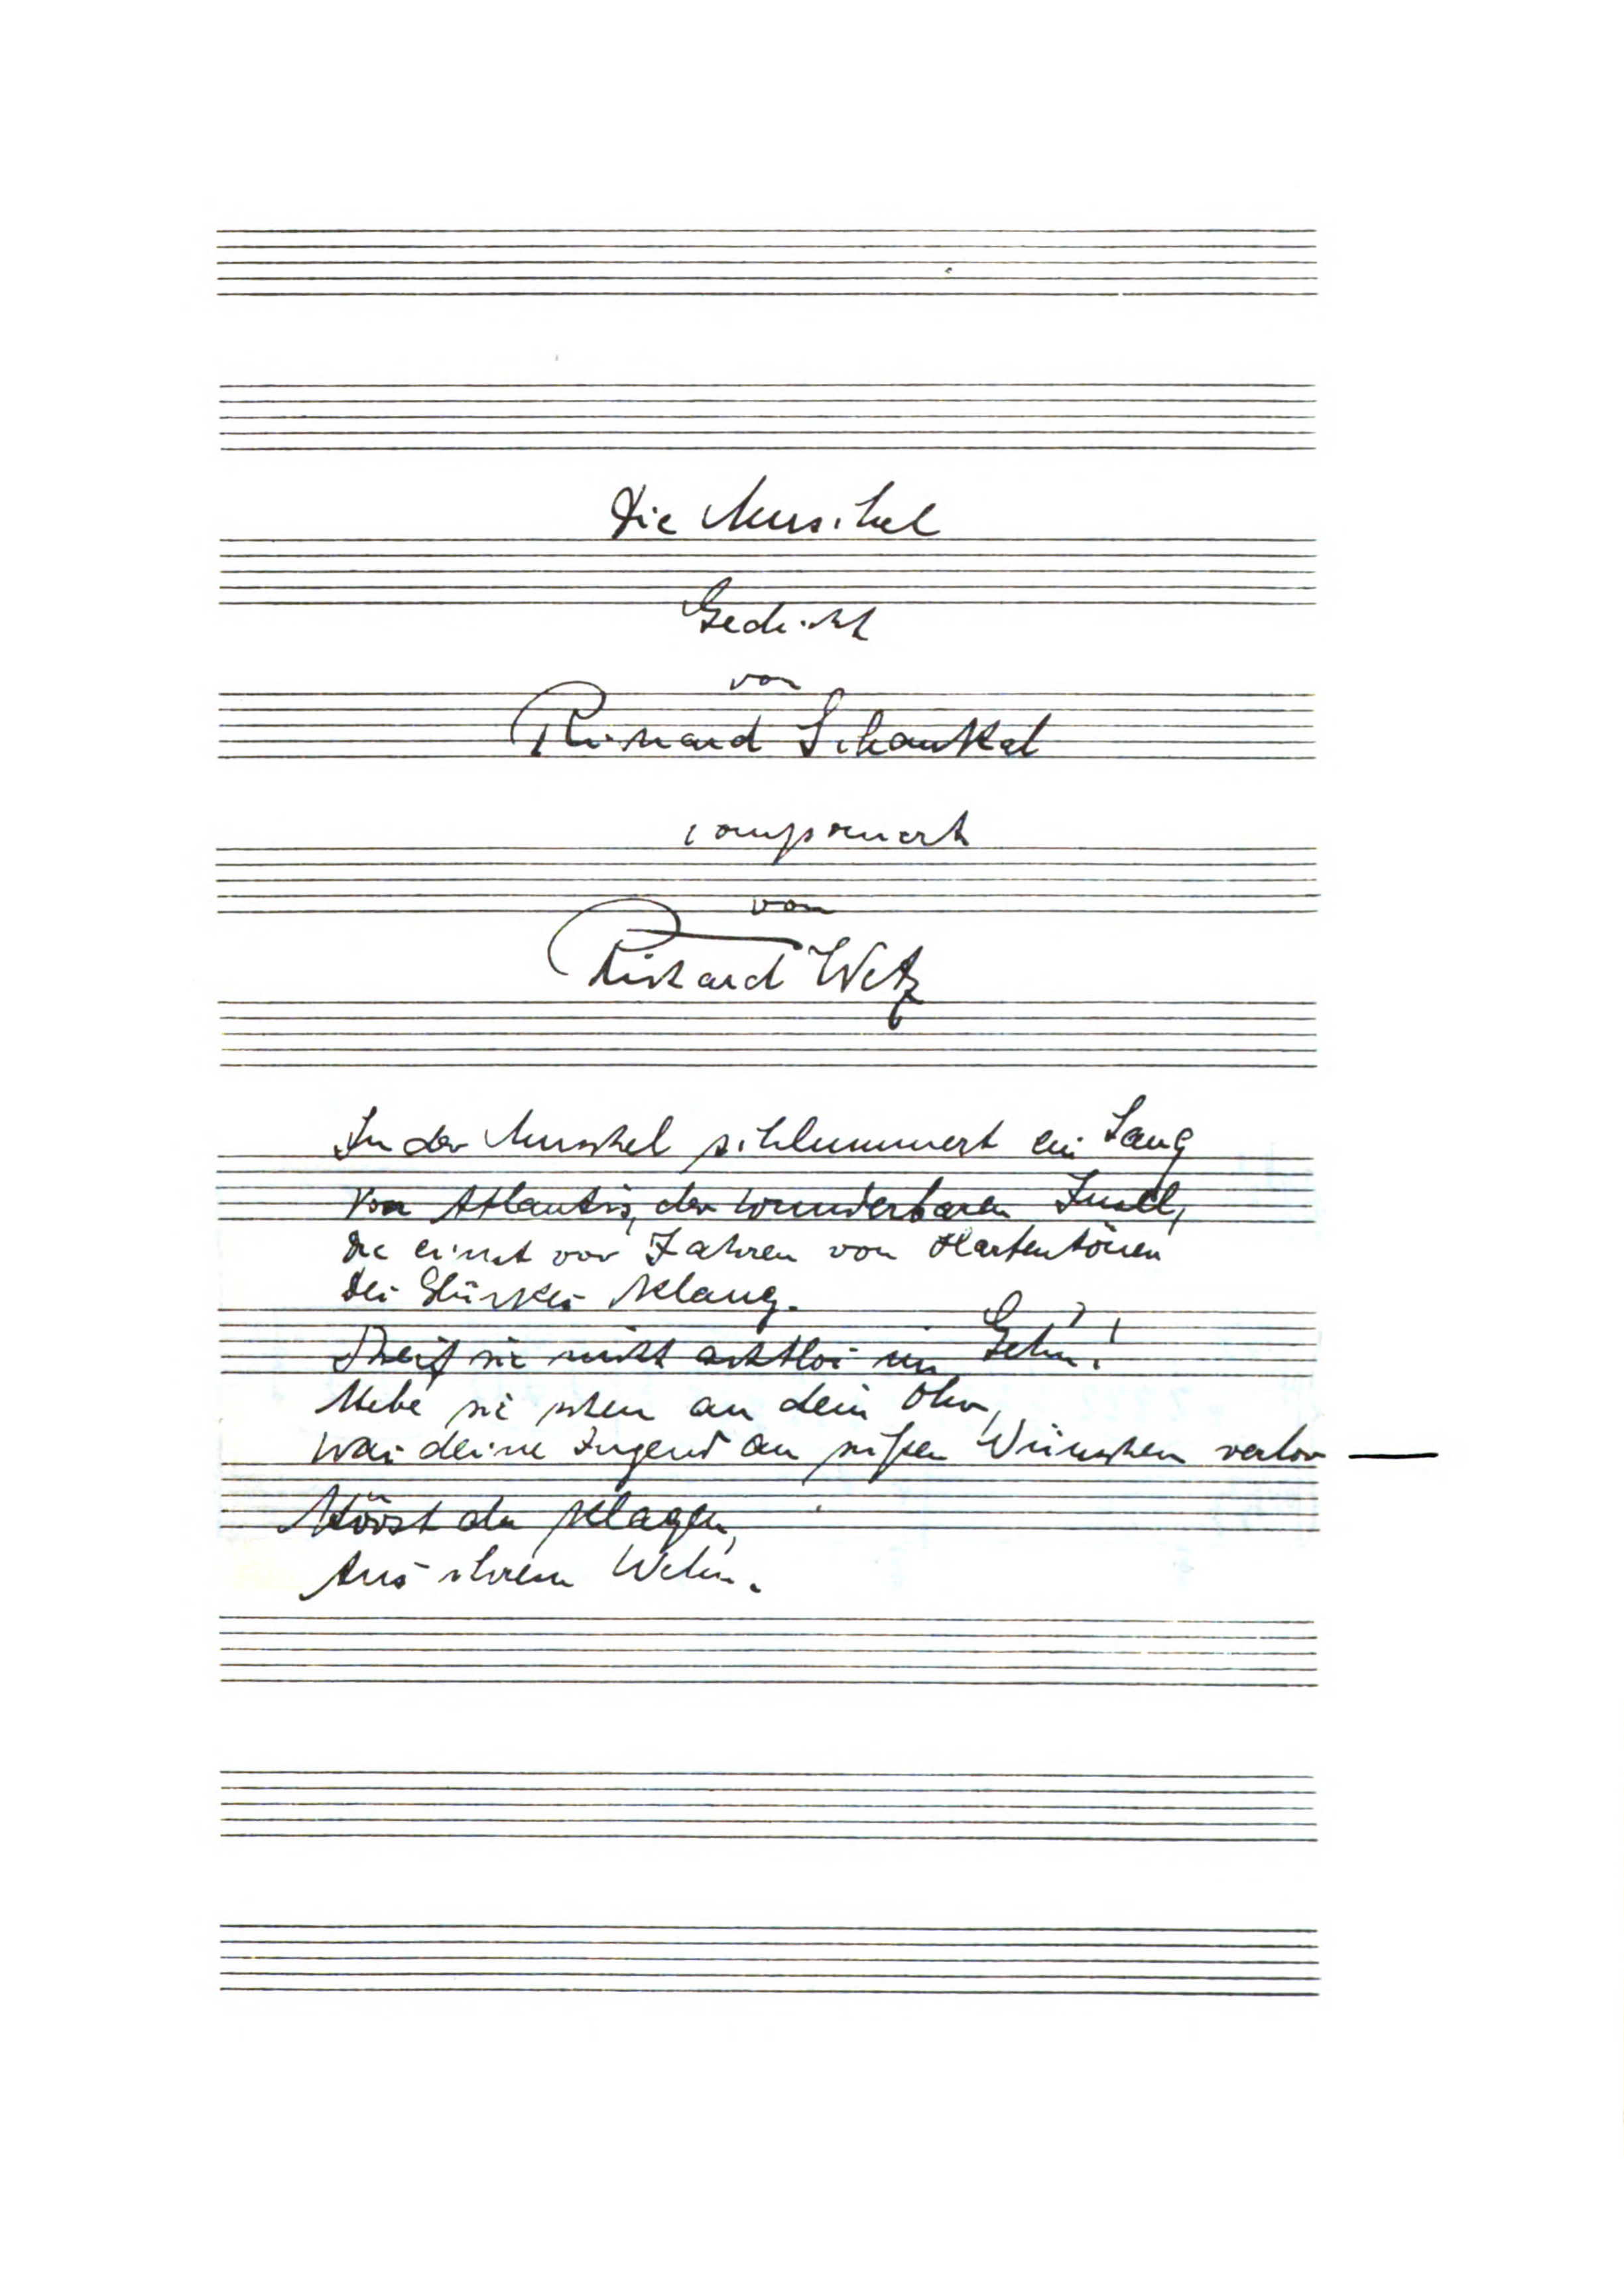 Die Muschel
Gedicht
von
Richard Schaukal
componiert
von
Richard Wetz
In der Muschel schlummert ein Sang
Von Atlantis, der wunderbaren Insel,
die einst vor Jahren von Harfentönen
des Glückes klang.
Streif sie nicht achtlos im Gehn!
Hebe sie scheu an dein Ohr,
Was deine Jugend an süßen Wünschen verlor —
Hörst du klagen
Aus ihrem Wehn.